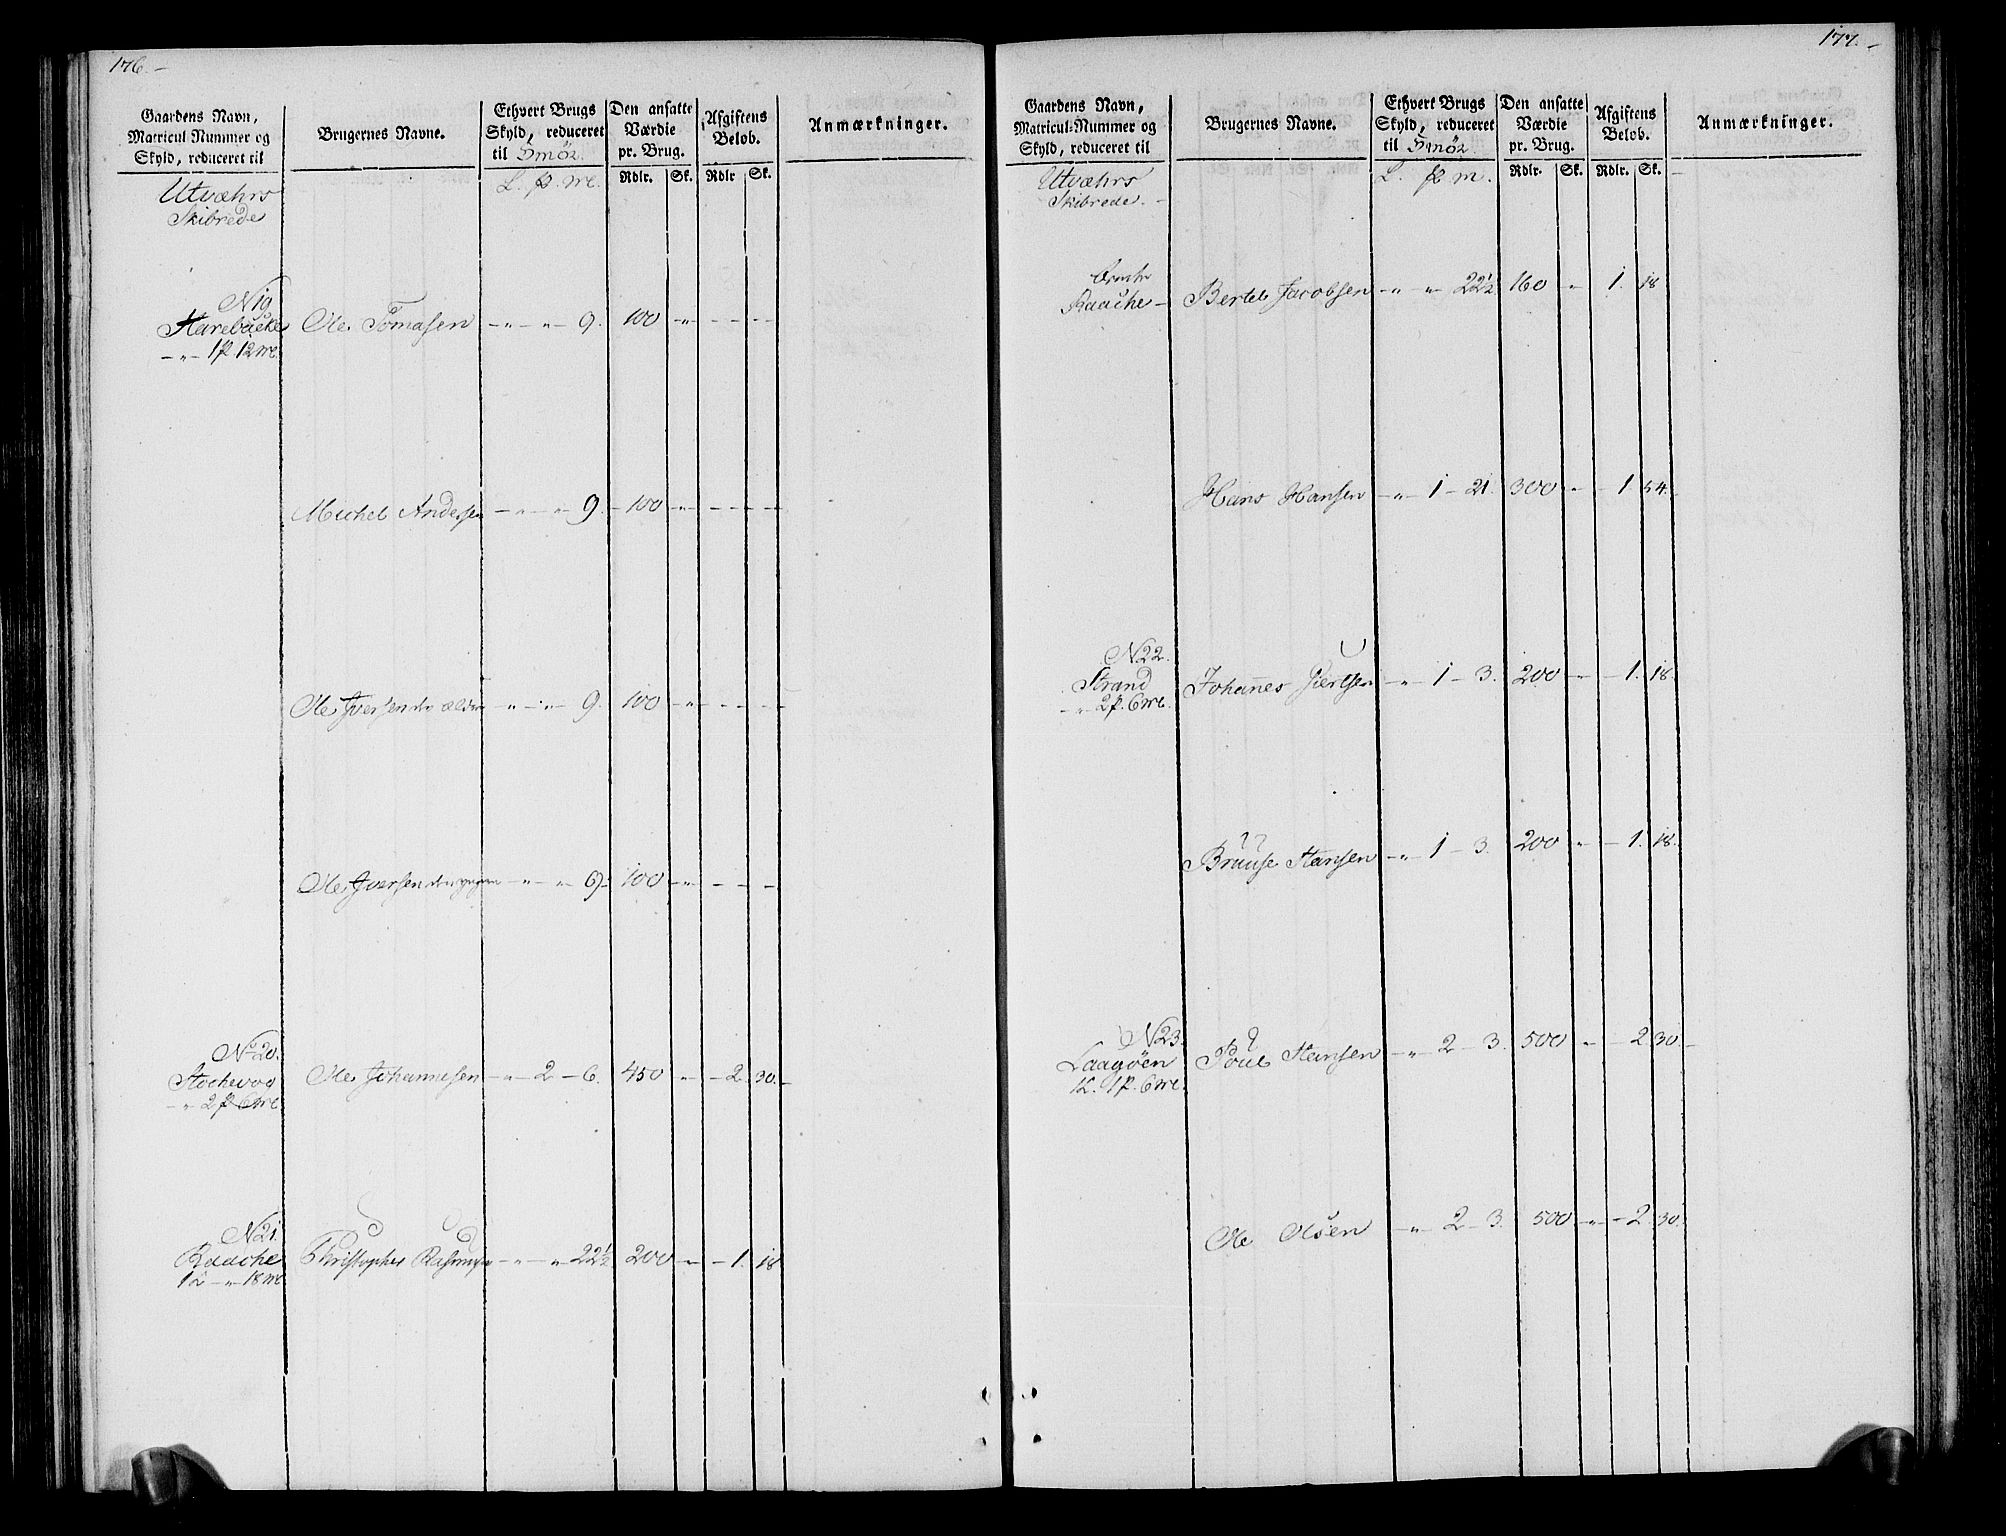 176.
Gaardens Navn, Matricul Nummer og Skyld, reduceret til
Brugernes Navne.
Ethvert Brugs Skyld, reduceret til Smör
Den ansatte Værdie pr. Brug.
Afgiftens Belöb.
Anmærkninger.
L. p. me.
Rdlr. Sk. Rdlr Sk.
Utvæhrs
Skibrede
N 19
Harebacke Ole Tomasen – " – " – 9. 100 – " – – – –
– " – 1 p 12 me.
Michel Andersen – " – " – 9. – 100 – " – – – –
Ole Iversen den ælder – " – " – 9. 100 – " – – – –
Ole Iversen den yngere – " – " – 9 – 100 – " – – – –
No 20.
Stochevog Ole Johannesen – " – 2 – 6. 450 " – 2. 30. –
– " 2 p 6 me
N 21.
Raache Christopher Rasmusen – " – " 22½ 200 – " – 1. 18
1 L – " – 18 me
177. –
Gaardens Navn, Matricul-Nummer og Skyld, reduceret til
Brugernes Navne.
Ethvert Brugs Skyld, reduceret til Smör
Den ansatte Værdie pr. Brug.
Afgiftens Belöb.
Anmærkninger.
L. p m.
Rdlr. Sk. Rdlr. Sk.
Utvæhrs
Skibrede. –
Raache – Bertel Jacobsen – " – " 22½ 160 " 1. 18
Hans Hansen – " – 1 – 21. 300 – " – 1 54.
N 22.
Strand Johannes – " – 1 – 3. 200 – " – 1. 18.
– " 2 p. 6 me.
Bruuse Hansen – " – 1 – 3. 200 " – 1. 18.
N 23.
Laagöen Poul Hansen – " 2 – 3. 500 " – 2 30. –
1 L. 1 p. 6 me.
Ole Olsen – " – 2 – 3. 500 – " – 2. 30.